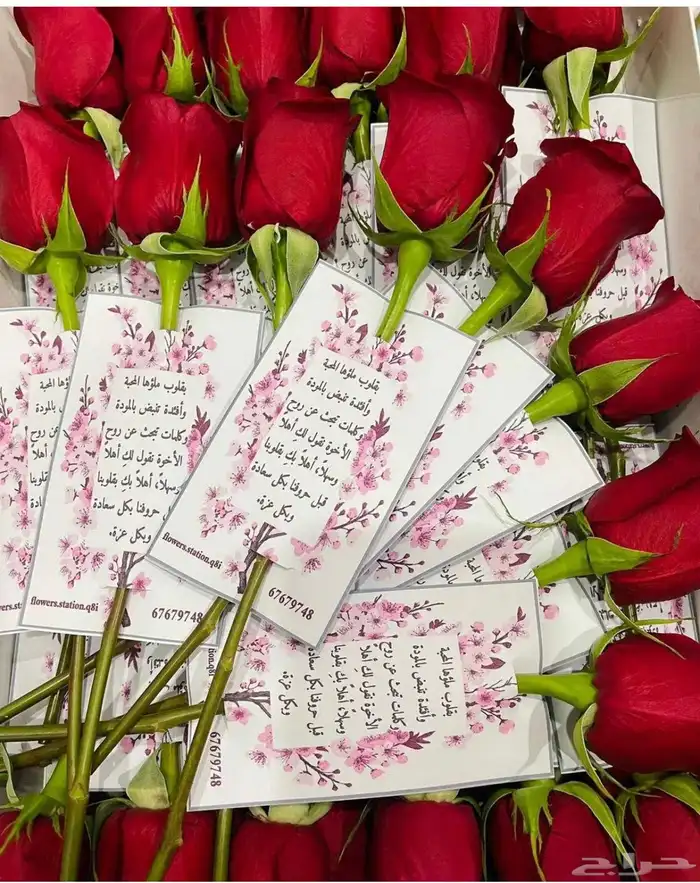 بقلوب ملؤها المحبة
وأفئدة تنبض بالمودة
وكلمات تبحث عن روح
الأخوة نقول لك أهلا
وسهلاً، أهلاً بكِ بقلوبنا
قبل حروفنا بكل سعادة
وبكل عزة.
flowers.station.q8i
67679748
بقلوب ملؤها المحبة
وأفئدة تنبض بالمودة
وكلمات تبحث عن روح
الأخوة نقول لك أهلا
وسهلاً، أهلاً بكِ بقلوبنا
قبل حروفنا بكل سعادة
وبكل عزة.
flowers.station.q8i
67679748
بقلوب ملؤها المحبة
وأفئدة تنبض بالمودة
وكلمات تبحث عن روح
الأخوة نقول لك أهلا
وسهلاً، أهلاً بكِ بقلوبنا
قبل حروفنا بكل سعادة
وبكل عزة.
67679748
حراج